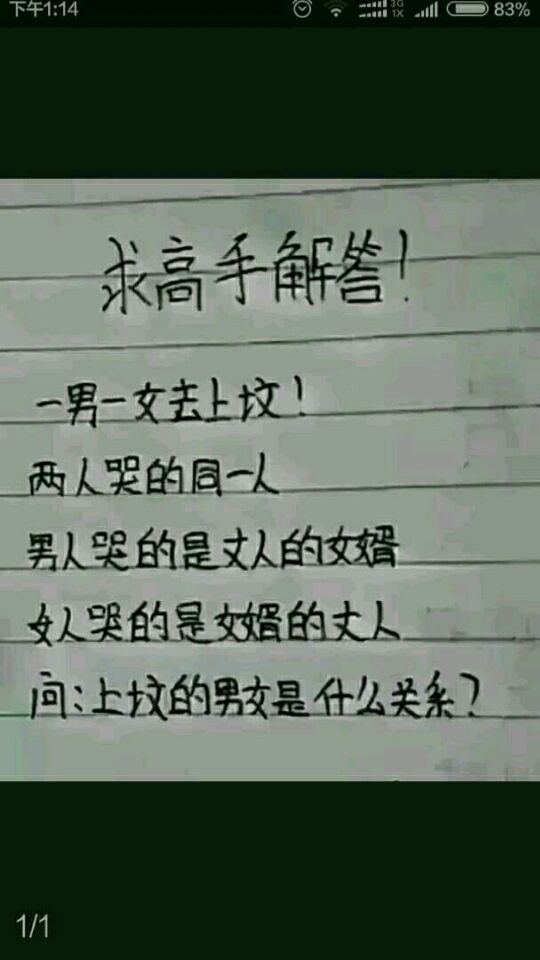 下午1:14
3G
1X
83%
求高手解答!
一男一女去上坟!
两人哭的同一人
男人哭的是丈人的女婿
女人哭的是女婿的丈人
问:上坟的男女是什么关系?
1/1